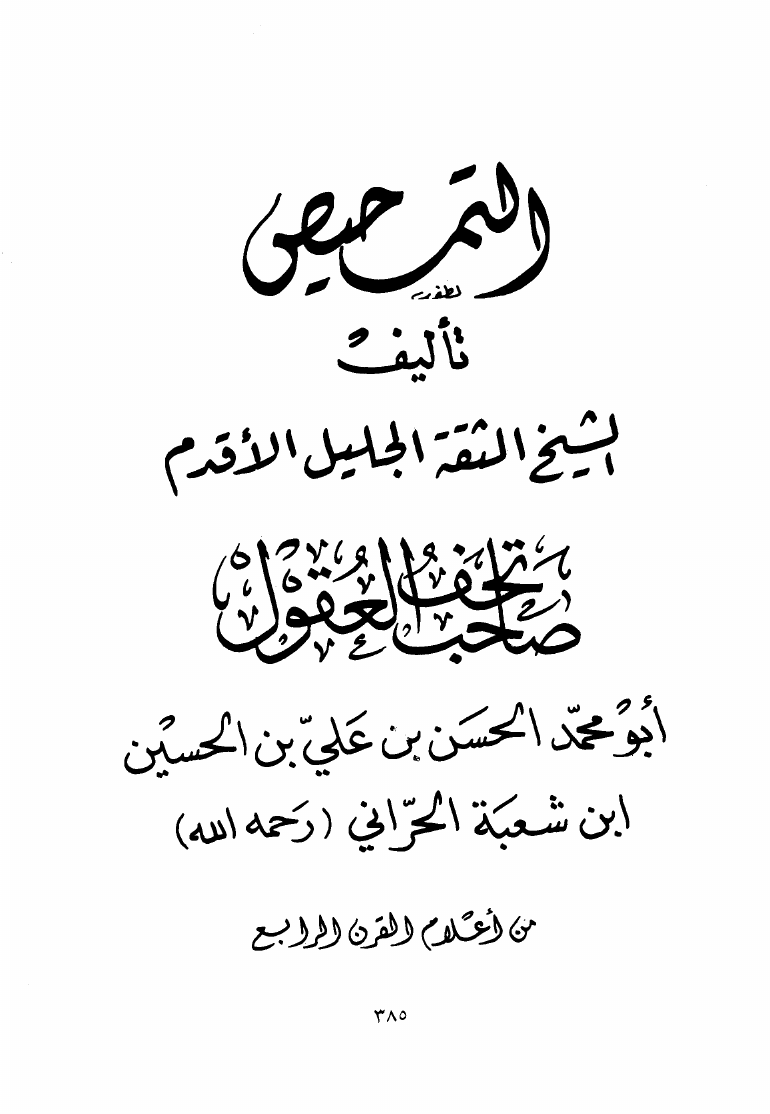 التمحيص
تأليف
الشيخ الثقة الجليل الأقدم
صاحب تحف العقول
أبو محمّد الحسَن بن عَليّ بن الحسين
ابن شعبَة الحرّاني (رَحمه الله)
من أعلام القرن الرابع
٣٨٥